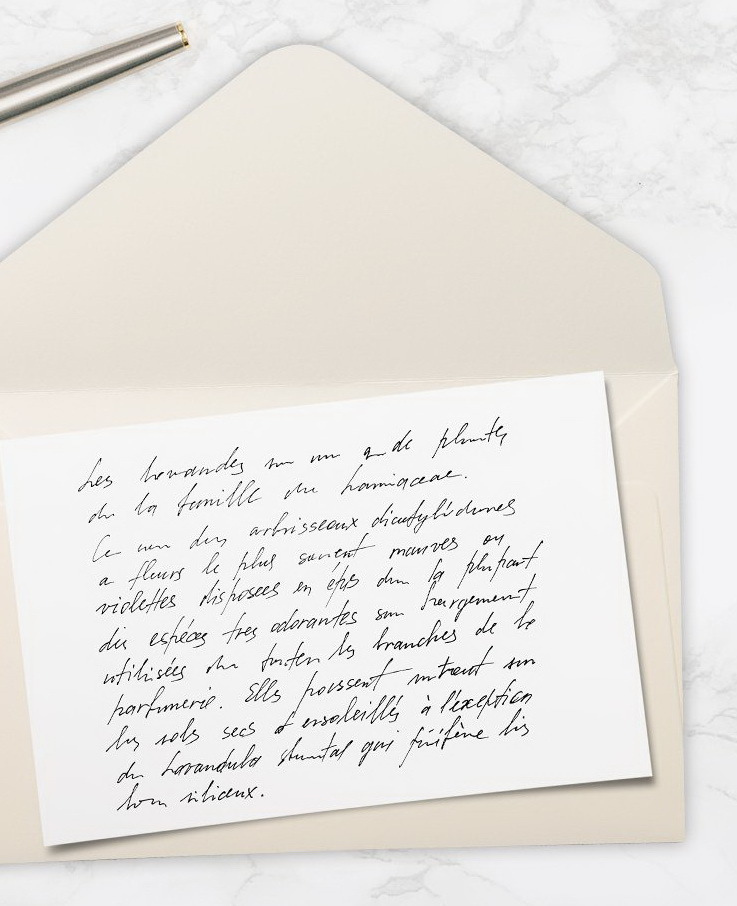 Les lavandes sont un de plantes
de la famille du Lamiaceae.
Ce arbrisseaux dicotylédones
a fleurs le plus souvent mauves ou
violettes disposées en épis dans la plupart
des espèces tres odorantes sont largement
utilisées dans toutes les branches de la
parfumerie. Elles poussent surtout sur
les sols secs et ensoleillés à l'exception
du Lavandula qui préfère les
siliceux.